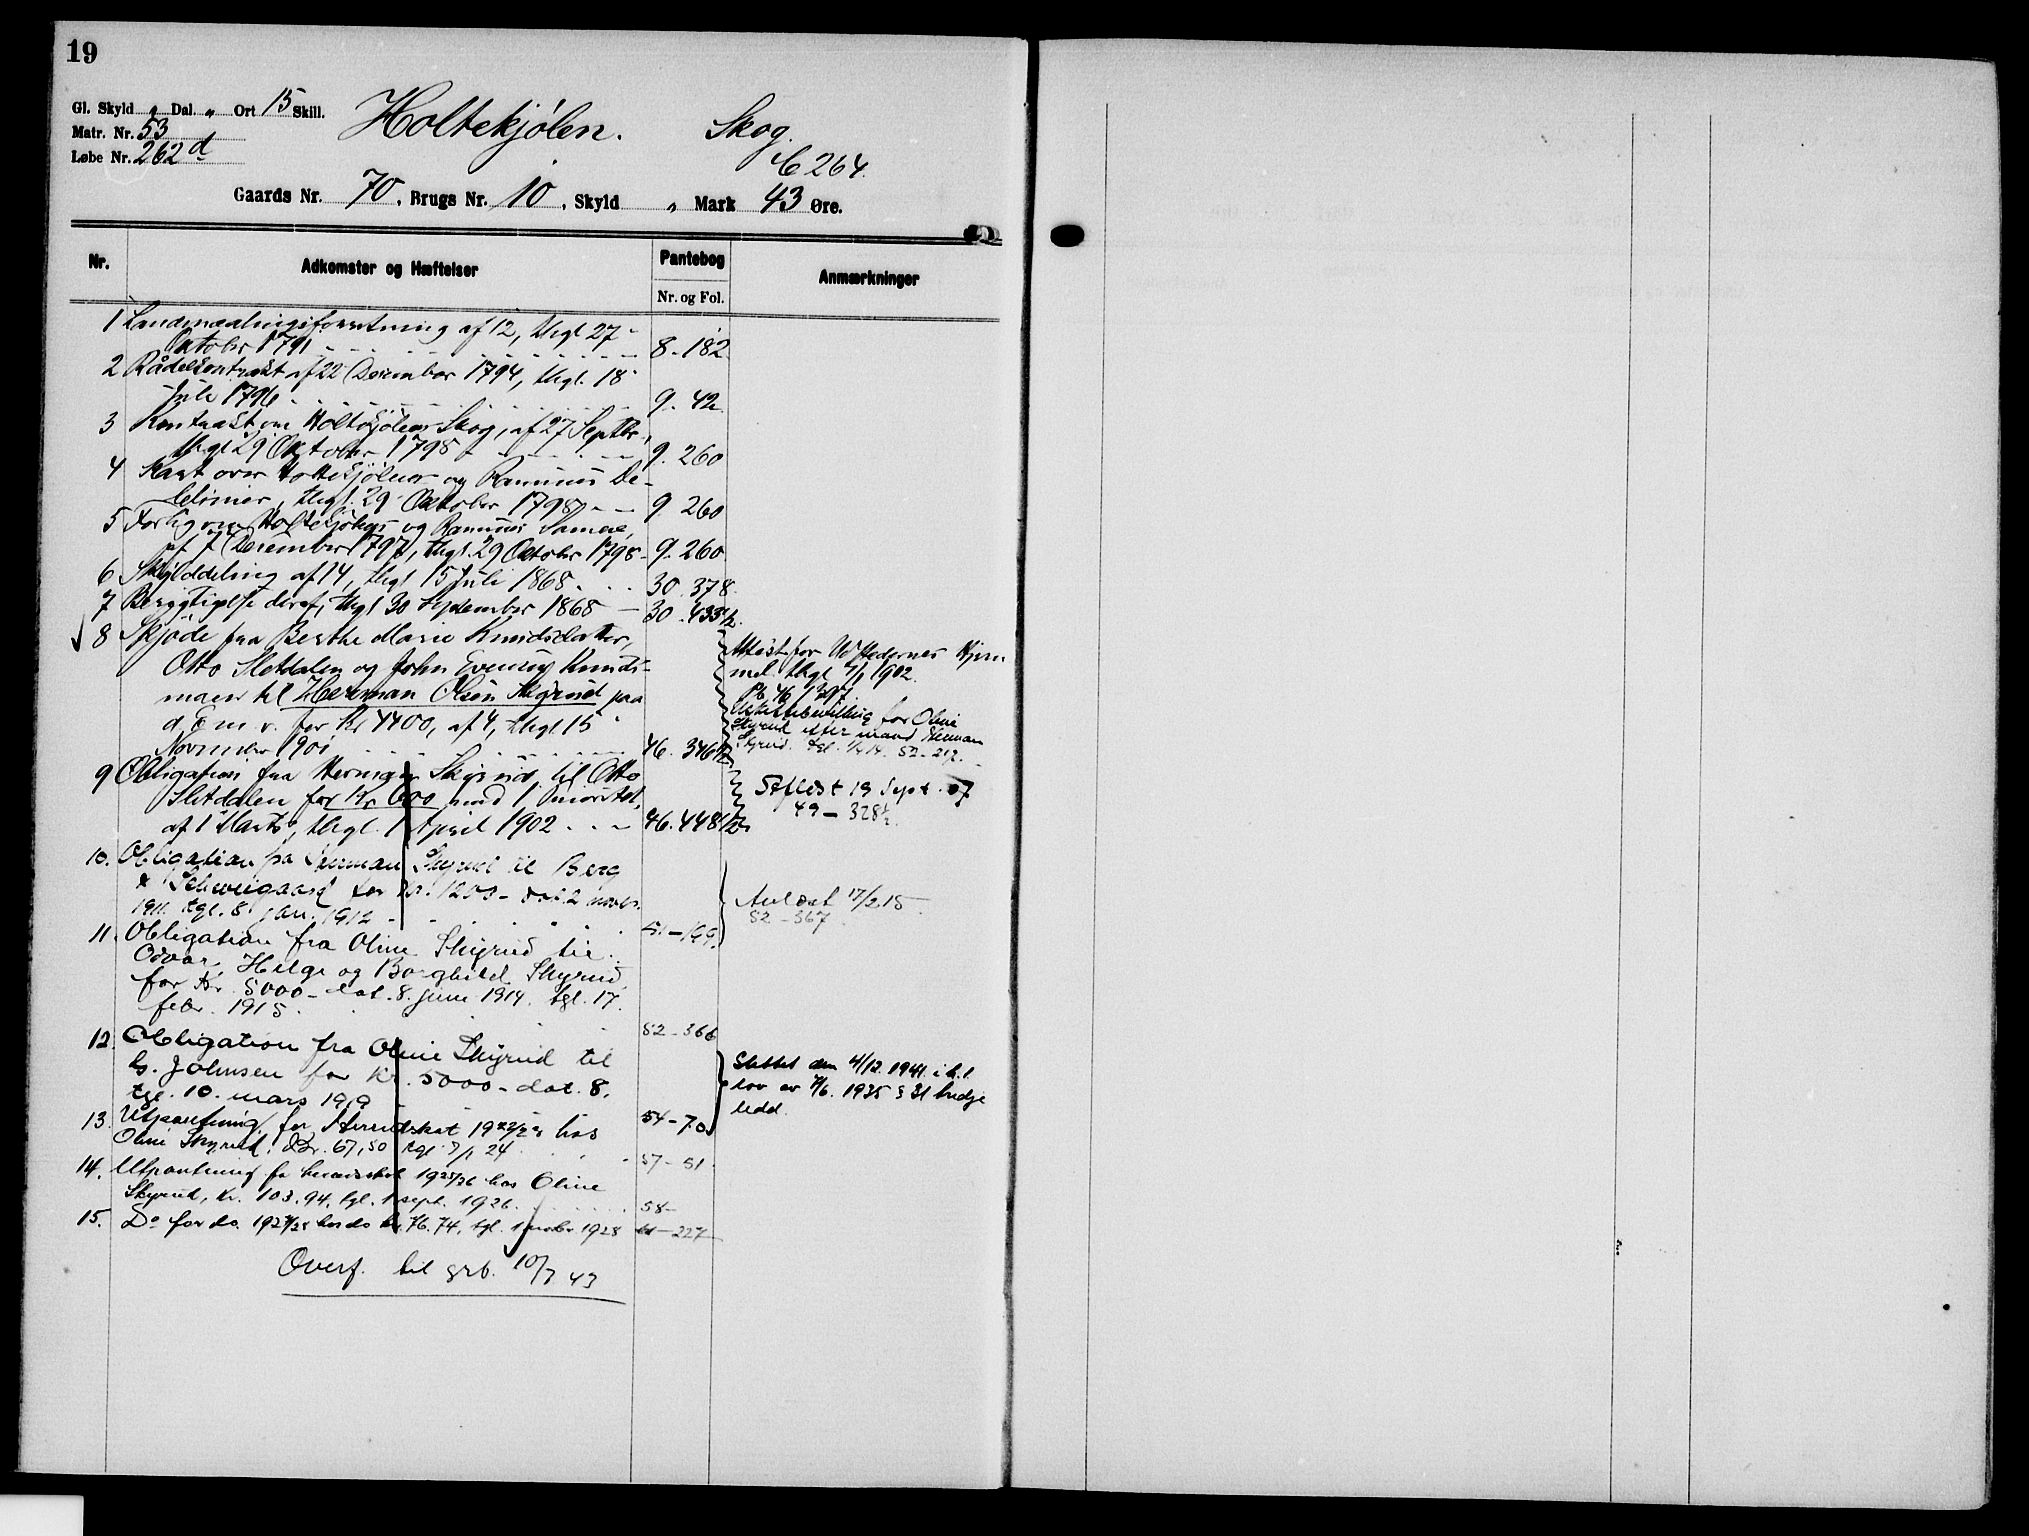 19
Gl. Skyld „ Dal. „ Ort 15 Skill.
Matr. Nr. 53
Løbe Nr. 262 d
Holtekjølen. Skog.
C 264.
Gaards Nr. 70, Brugs Nr. 10, Skyld „ Mark 43 Øre.
Nr. Adkomster og Hæftelser Pantebog Anmærkninger
Nr. og Fol.
1 af 12, thgl 27
Oktober 1791 8. 182
2 Rådekontrakt af 22 December 1794, thgl. 18
Juli 1796 9. 42
3 Kontrakt om Skog, af 27 Septbr.,
thgl 29 Oktober 1798 9. 260
4 Kart over og De-
thgl. 29 Oktober 1798 9. 260
5 Forlig om og
af 7 December 1797, thgl. 29 Oktober 1798 9. 260
6 Skylddeling af 14, thgl 15 Juli 1868 30. 378.
7 Berigtigelse deraf, thgl 30 September 1868 30. 433½.
8 Skjøde fra Berthe Marie Knudsdatter,
Otto Sletdalen og John Evensen Knuds-
moen til Herman Olsen Skyrud paa
d. E. m. v. for Kr 4400, af 4, thgl 15
November 1901 46. 346½
Attest for Hjem-
mel thgl 1902.
Pb. 46 397.
Uskiftebevilling for Oline
Skyrud efter mand Herman
Skyrud. tgl. 52-217.
9 Obligation fra Herman Skyrud til Otto
Sletdalen for Kr 600 mod 1 Prioritet,
af 1 Marts, thgl. 1 April 1902 46. 448½
Aflæst 19 Sept. 07
49 - 328½.
10. Obligation fra Herman Skyrud til Berg
& Schweigaard for kr. 1200 - dat. 2 novbr.
1911. tgl. 8. jan. 1912 51 - 199.
Avlæst 17/2 15.
52 - 367
11. Obligation fra Oline Skyrud til
Odvar, Helge og Borghild Skyrud
for Kr. 5000 - dat. 8. juni 1914. tgl. 17.
febr. 1915. 52 - 366
12. Obligation fra Oline Skyrud til
Johnsen for Kr. 5000 - dat. 8.
tgl. 10. mars 1919 54 - 70
Slettet den 4/12. 1941. i h. t.
lov av 7/6. 1935 § 31 tredje
ledd.
13. Utpantning for Herredskat 1922/23 hos
Oline Skyrud, Kr. 67,50 tgl. 24 57 - 51.
14. Utpantning for herredskat 1925/26 hos Oline
Skyrud, kr. 103.94, tgl. 1 sept. 1926. 58 -
15. Do for do. 1927/28 hos do kr. 76.74, tgl. 1 novbr 1928 - 227
Overf. til grb. 10/7 43